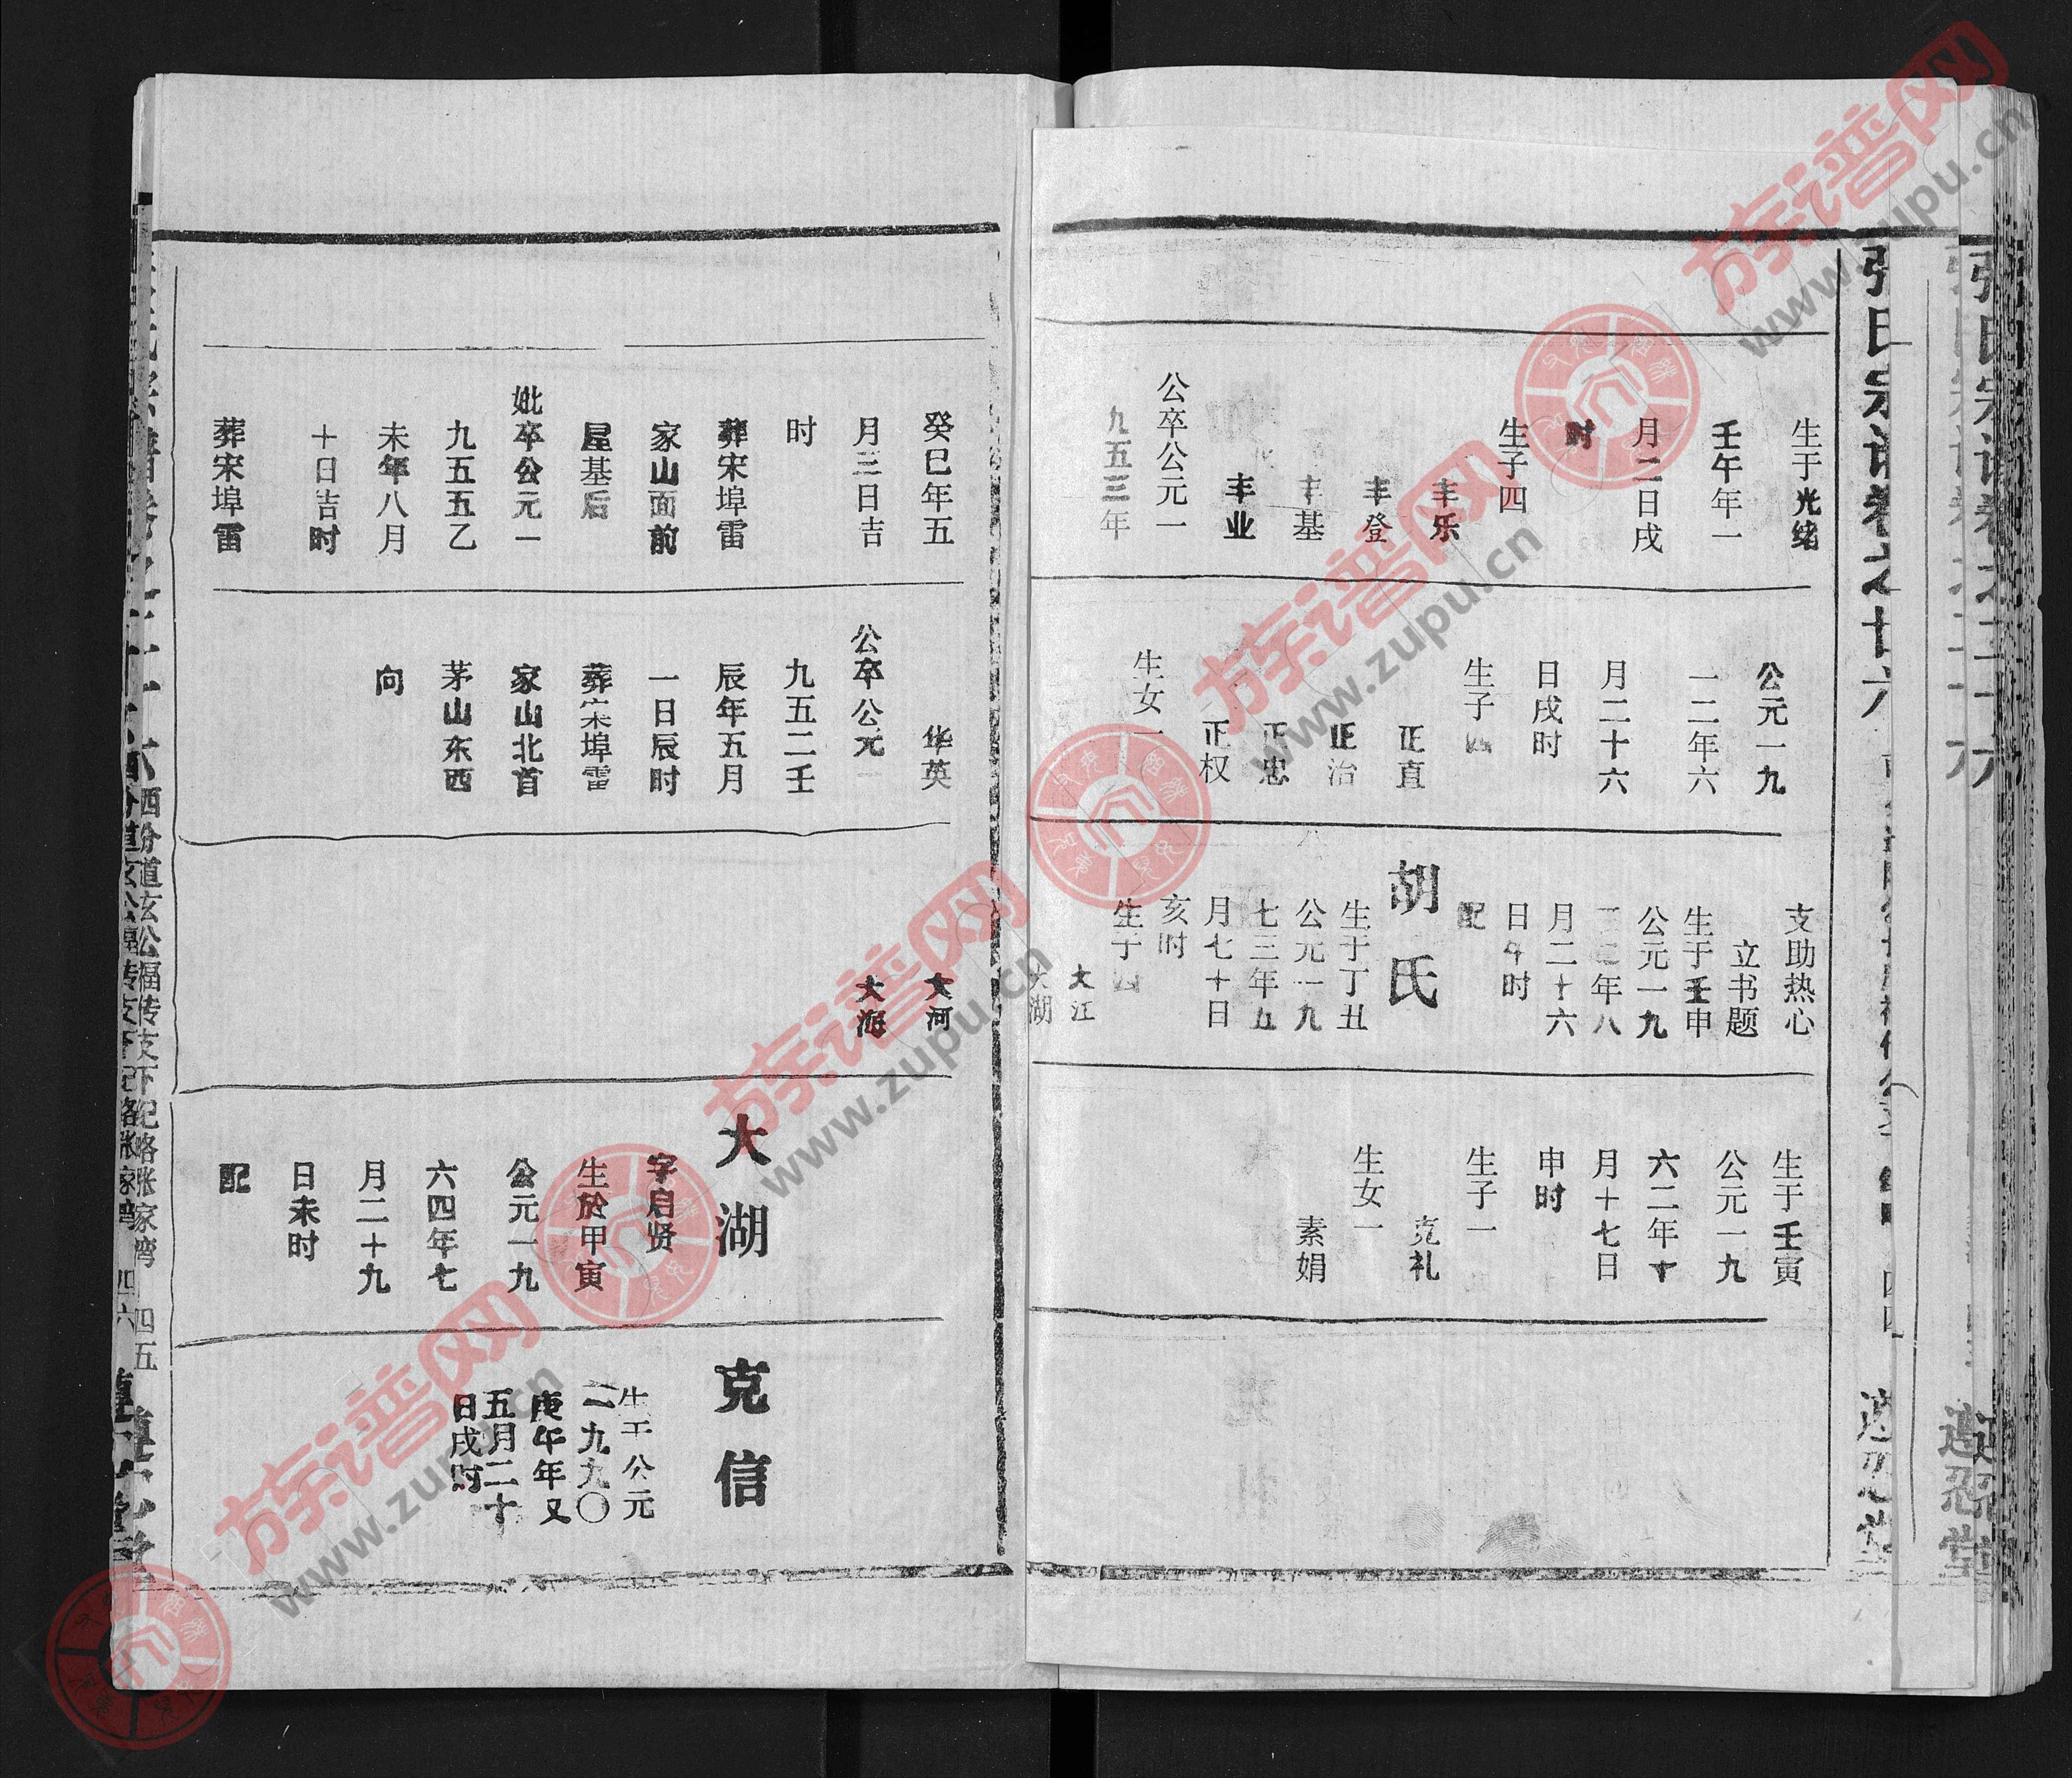 生于光绪
壬午年一
月二日戌
时
生子四
丰乐
丰登
丰基
丰业
公卒公元一
九五三年
公元一九
一二年六
月二十六
日戌时
生子四
正直
正治
正忠
正权
生女一
支助热心
立书题
生于壬申
公元一九
三二年八
月二十六
日午时
配
胡氏
生于丁丑
公元一九
七三年五
月七十日
亥时
生子四
大江
大湖
生于壬寅
公元一九
六二年十
月十七日
申时
生子一
克礼
生女一
素娟
癸巳年五
月三日吉
时
葬宋埠雷
家山面前
屋基后
妣卒公元一
九五五乙
未年八月
十日吉时
葬宋埠雷
华英
公卒公元一
九五二壬
辰年五月
一日辰时
葬宋埠雷
家山北首
茅山东西
向
大河
大海
大湖
字启贤
生於甲寅
公元一九
六四年七
月二十九
日未时
配
克信
生于公元
一九九〇
庚午年又
五月二十
日戌时
西分道玄公福传支下纪略张家湾 四五
族谱网
www.zupu.cn
族谱网
www.zupu.cn
族谱网
www.zupu.cn
族谱网
www.zupu.cn